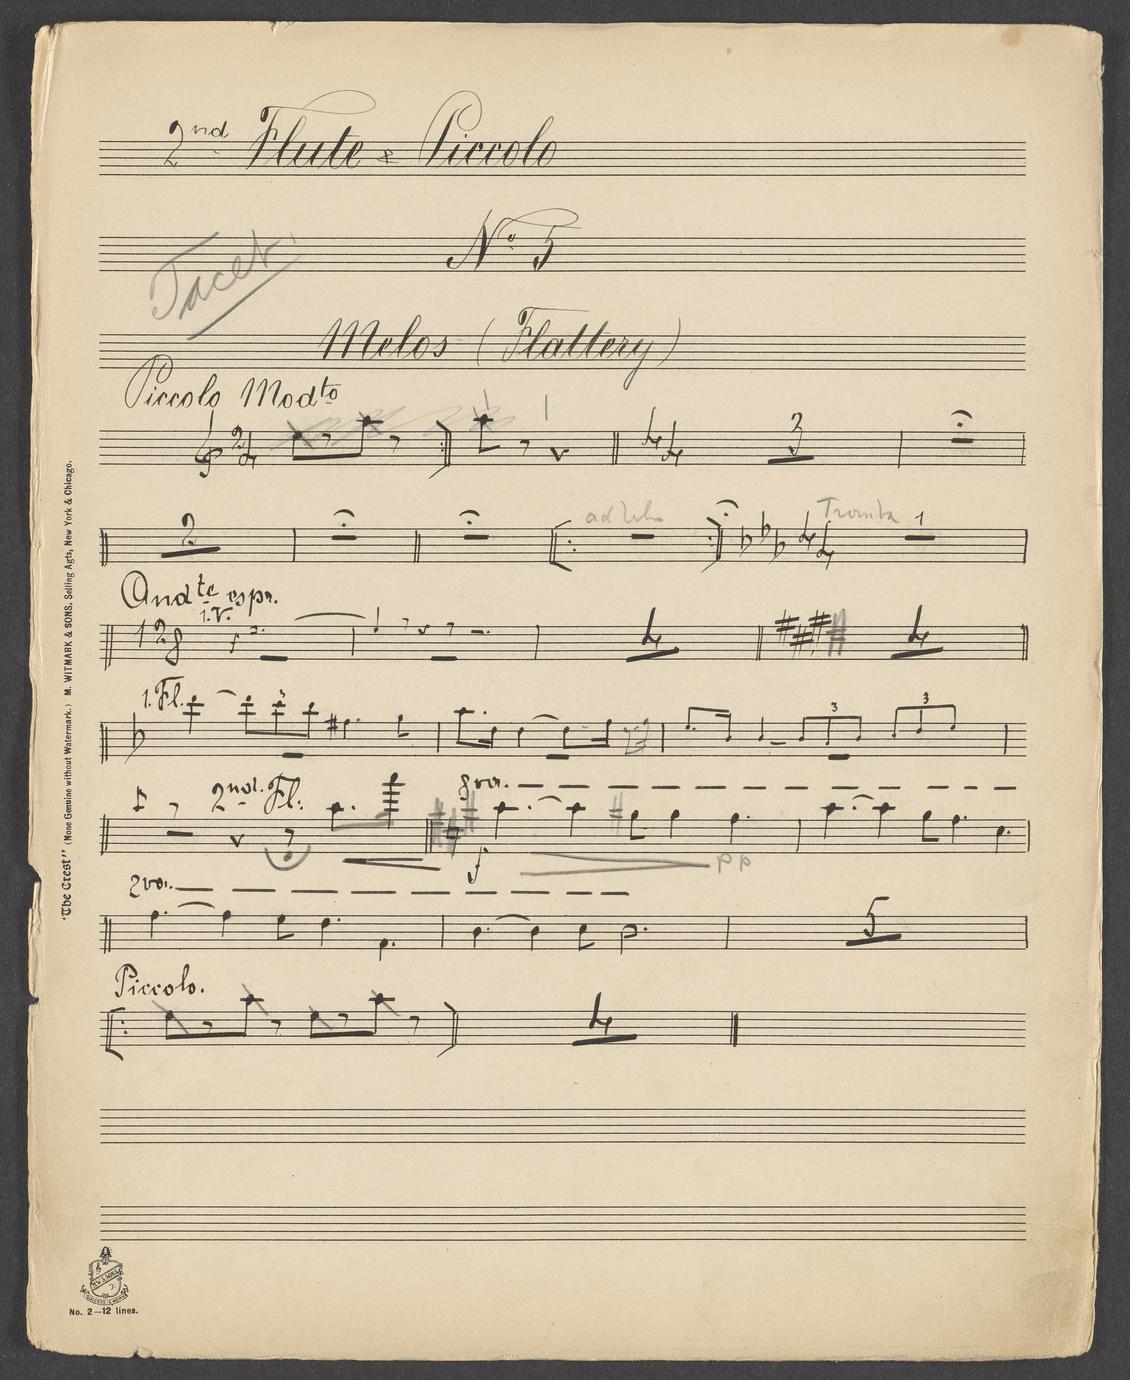 2nd Flute & Piccolo
No 5
Tacet
Melos (Flattery)
Piccolo Modto
2 4 4 4 3
2 ad lib Tromba 4 4 1
Andte espr.
1.V.
12 8 4 4
1. Fl. 3 3 3
2nd. Fl: 8va.
f pp
8va. 5
Piccolo.
4
"The Crest" (None Genuine without Watermark.) M. WITMARK & SONS, Selling Agts, New York & Chicago.
No. 2—12 lines.